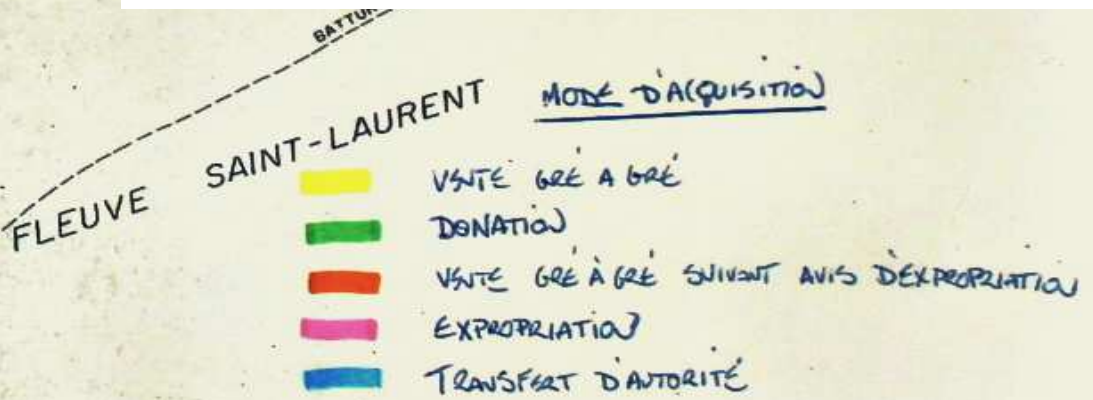 BATTUR
FLEUVE SAINT-LAURENT
MODE D'ACQUISITION
VENTE GRÉ A GRÉ
DONATION
VENTE GRÉ À GRÉ SUIVANT AVIS D'EXPROPRIATION
EXPROPRIATION
TRANSFERT D'AUTORITÉ